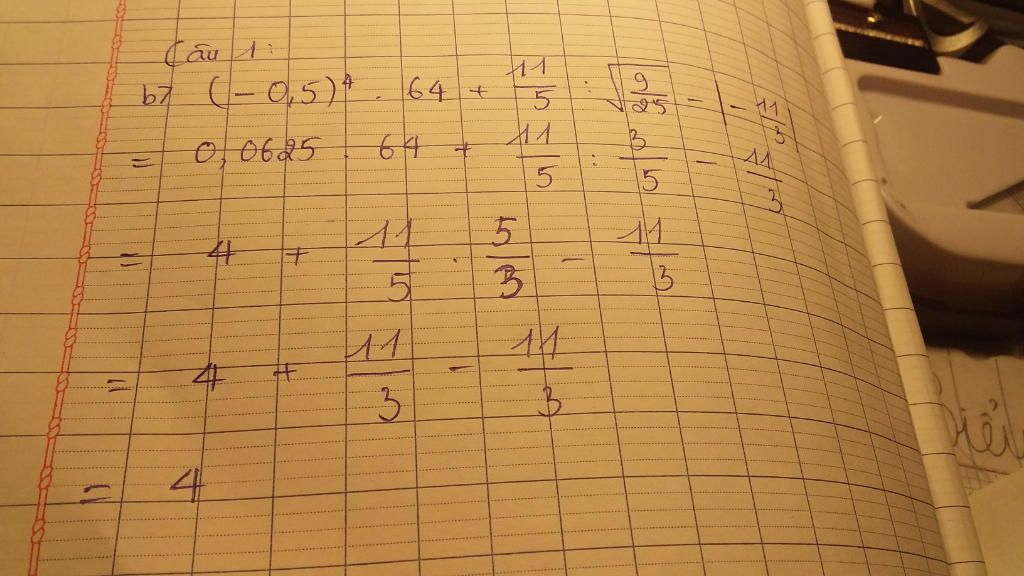 Câu 1:
b) (-0,5)⁴ . 64 + 11/5 : √(9/25) - |-11/3|
= 0,0625 . 64 + 11/5 : 3/5 - 11/3
= 4 + 11/5 . 5/3 - 11/3
= 4 + 11/3 - 11/3
= 4